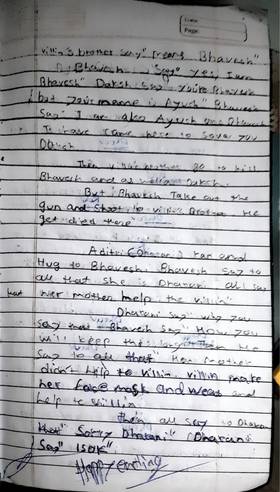 Date:
Page:
Villin's brother say "means Bhavesh"
Bhavesh say "yes, I am
Bhavesh" Daksh say you're Bhavesh
but your name is Ayush" Bhavesh
say" I am also Ayush and Bhavesh
I have came here to save you
Daksh
Then villin's brother go to kill
Bhavesh and as well
But Bhavesh Take out the
gun and shoot to villin's brother He
get died there
Aditri (Dharani) ran and
Hug to Bhavesh. Bhavesh say to
all that she is Dharani all say
that her mother help the villin"
Dharani say" why you
say Bhavesh say" How you
will keep this
say to all that" Her mother
didn't help to villin villin make
her face mask and wear and
help to villin
then all say to Dharani
that" Sorry Dharani" Dharani
say" Isok"
Happy ending